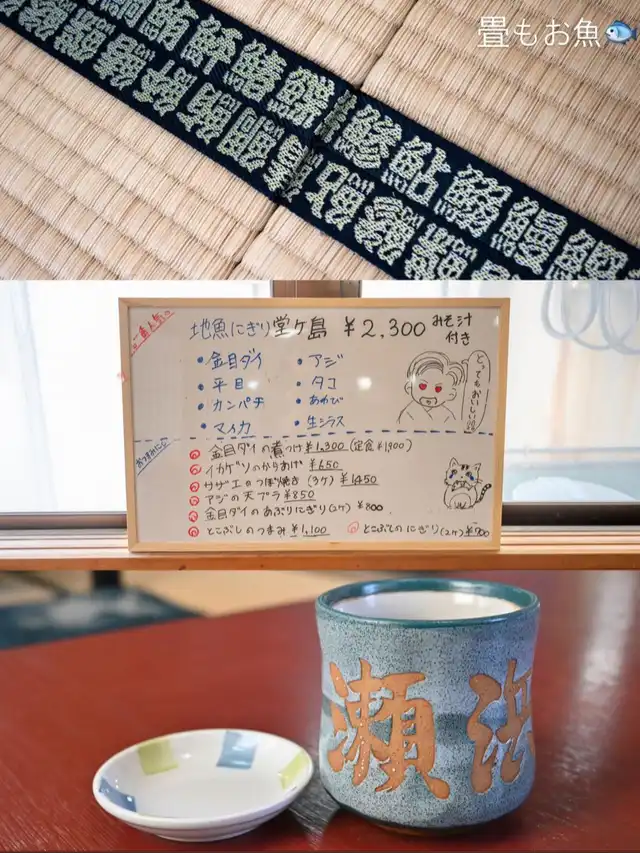 畳もお魚🐟
一番人気
地魚にぎり堂ヶ島 ¥2,300 みそ汁付き
・金目ダイ ・アジ
・平目 ・タコ
・カンパチ ・あわび
・マイカ ・生シラス
とってもおいしい!!
おつまみに
金目ダイの煮つけ ¥1,300 (定食¥1900)
イカゲソのからあげ ¥650
サザエのつぼ焼き (3ケ) ¥1450
アジの天プラ ¥850
金目ダイのあぶりにぎり(2ケ) ¥800
とこぶしのつまみ ¥1,100 とこぶしのにぎり(2ケ)
瀬浜